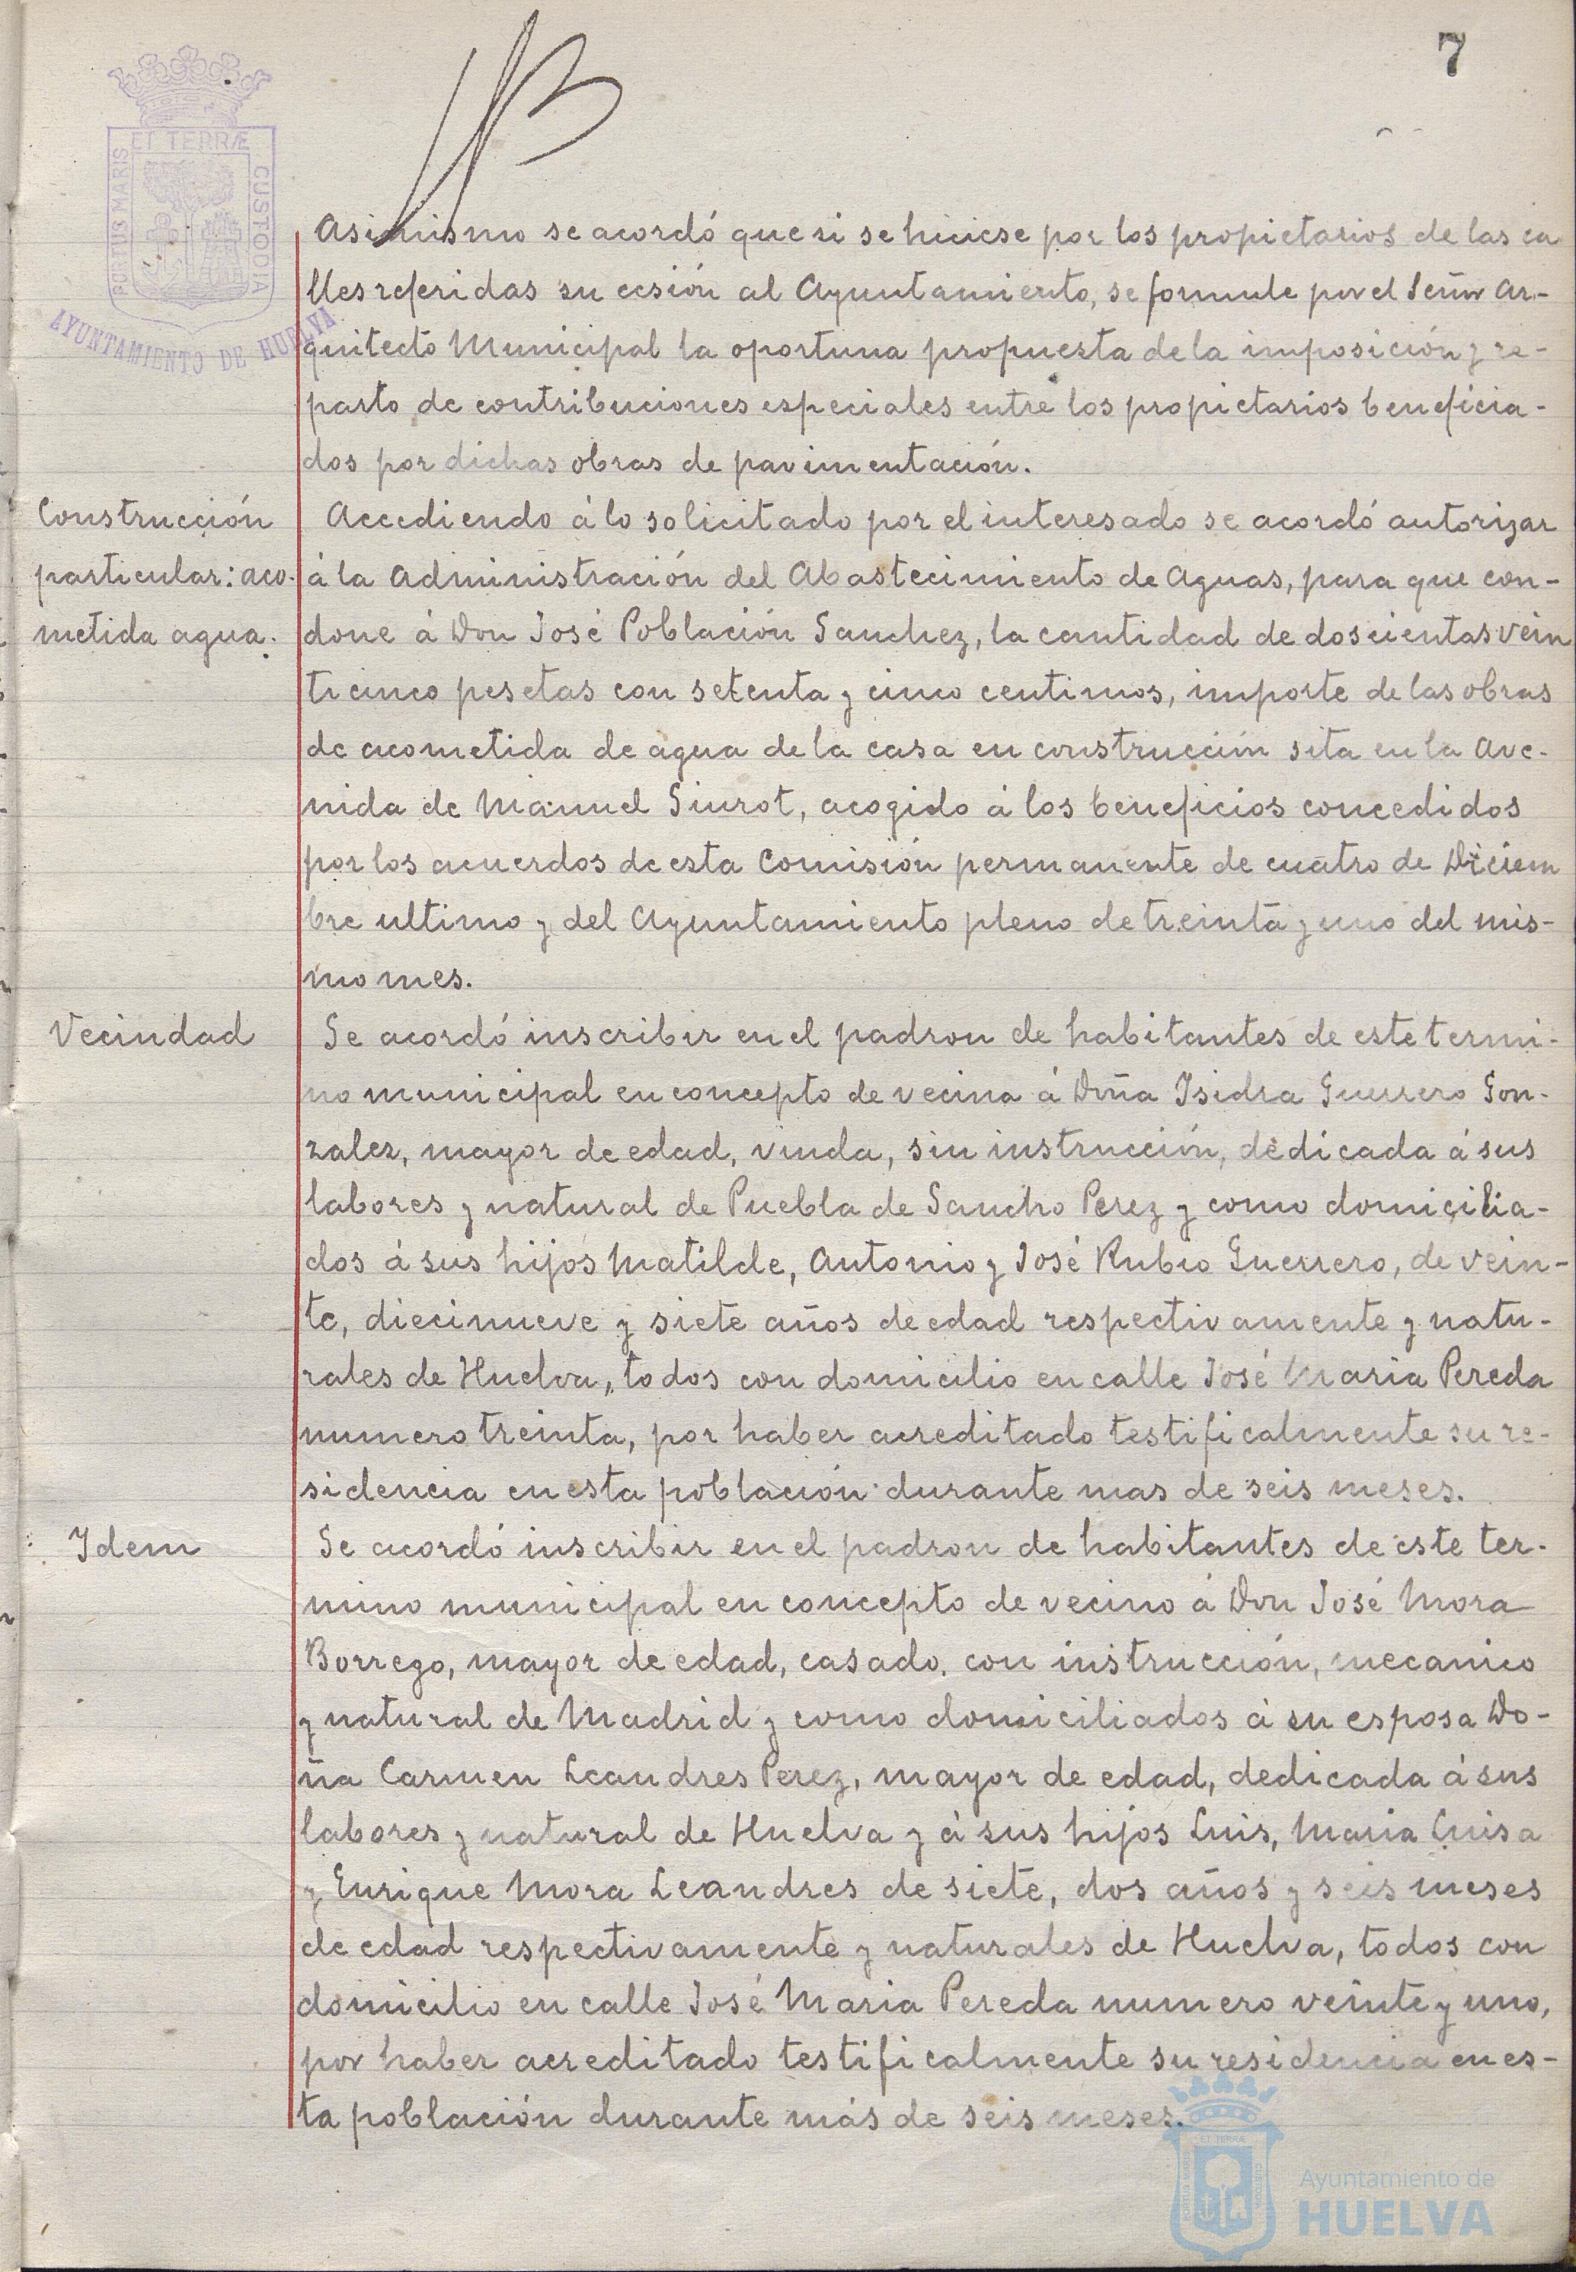 7
ET TERRÆ
PORTUS MARIS
CUSTODIA
AYUNTAMIENTO DE HUELVA
Asimismo se acordó que si se hiciese por los propietarios de las ca
lles referidas su cesión al Ayuntamiento, se formule por el Señor Ar-
quitecto Municipal la oportuna propuesta de la imposición y re-
parto de contribuciones especiales entre los propietarios beneficia-
dos por dichas obras de pavimentación.
Construcción
particular: aco-
metida agua.
Accediendo á lo solicitado por el interesado se acordó autorizar
á la Administración del Abastecimiento de Aguas, para que con-
done á Don José Población Sanchez, la cantidad de doscientas vein
ticinco pesetas con setenta y cinco centimos, importe de las obras
de acometida de agua de la casa en construcción sita en la Ave-
nida de Manuel Siurot, acogido á los beneficios concedidos
por los acuerdos de esta Comisión permanente de cuatro de Diciem
bre ultimo y del Ayuntamiento pleno de treinta y uno del mis-
mo mes.
Vecindad
Se acordó inscribir en el padron de habitantes de este termi-
no municipal en concepto de vecina á Doña Isidra Guerrero Gon-
zalez, mayor de edad, viuda, sin instrucción, dedicada á sus
labores y natural de Puebla de Sancho Perez y como domicilia-
dos á sus hijos Matilde, Antonio y José Rubio Guerrero, de vein-
te, diecinueve y siete años de edad respectivamente y natu-
rales de Huelva, todos con domicilio en calle José Maria Pereda
numero treinta, por haber acreditado testificalmente su re-
sidencia en esta población durante mas de seis meses.
Idem
Se acordó inscribir en el padron de habitantes de este ter-
mino municipal en concepto de vecino á Don José Mora
Borrego, mayor de edad, casado, con instrucción, mecanico
y natural de Madrid y como domiciliados á su esposa Do-
ña Carmen Leandres Perez, mayor de edad, dedicada á sus
labores y natural de Huelva y á sus hijos Luis, Maria Luisa
y Enrique Mora Leandres de siete, dos años y seis meses
de edad respectivamente y naturales de Huelva, todos con
domicilio en calle José Maria Pereda numero veinte y uno,
por haber acreditado testificalmente su residencia en es-
ta población durante más de seis meses.
Ayuntamiento de
HUELVA